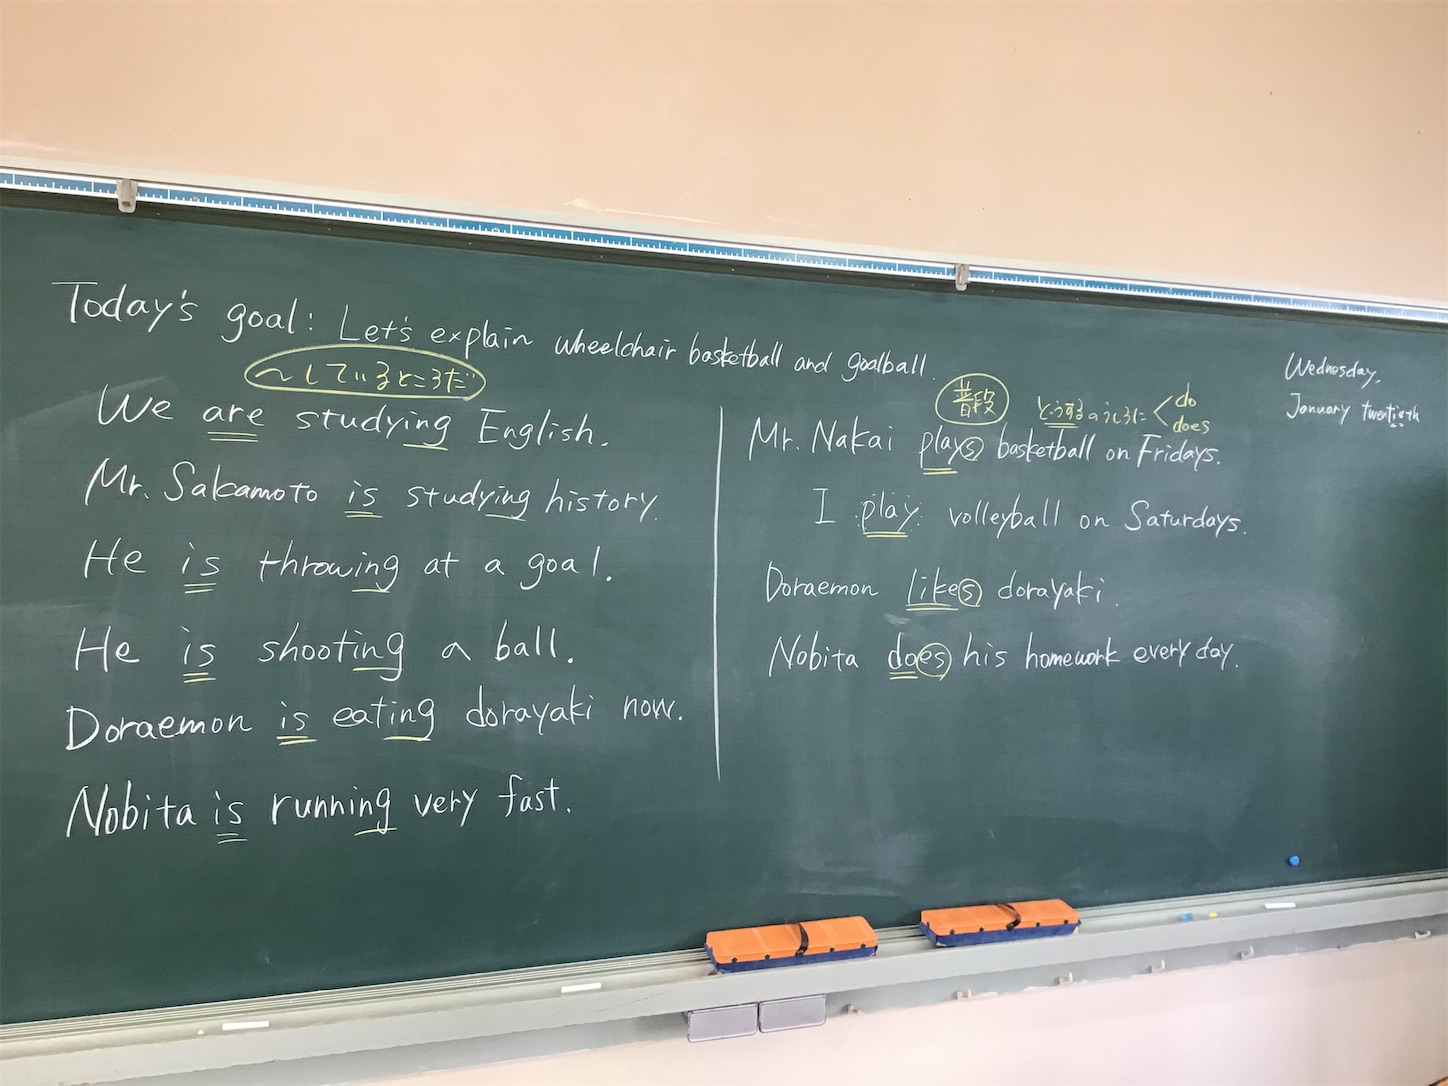 Today's goal: Let's explain wheelchair basketball and goalball.
～しているところだ
We are studying English.
Mr. Sakamoto is studying history.
He is throwing at a goal.
He is shooting a ball.
Doraemon is eating dorayaki now.
Nobita is running very fast.
普段
どうするのうしろに
do
does
Mr. Nakai plays basketball on Fridays.
I play volleyball on Saturdays.
Doraemon likes dorayaki.
Nobita does his homework every day.
Wednesday,
January twentieth